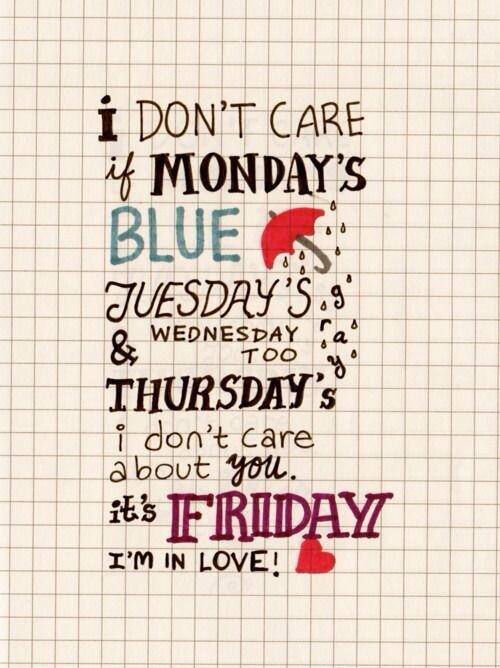 i DON'T CARE
if MONDAY'S
BLUE
TUESDAY'S gray
& WEDNESDAY
TOO
THURSDAY's
i don't care
about you.
it's FRIDAY
I'M IN LOVE!